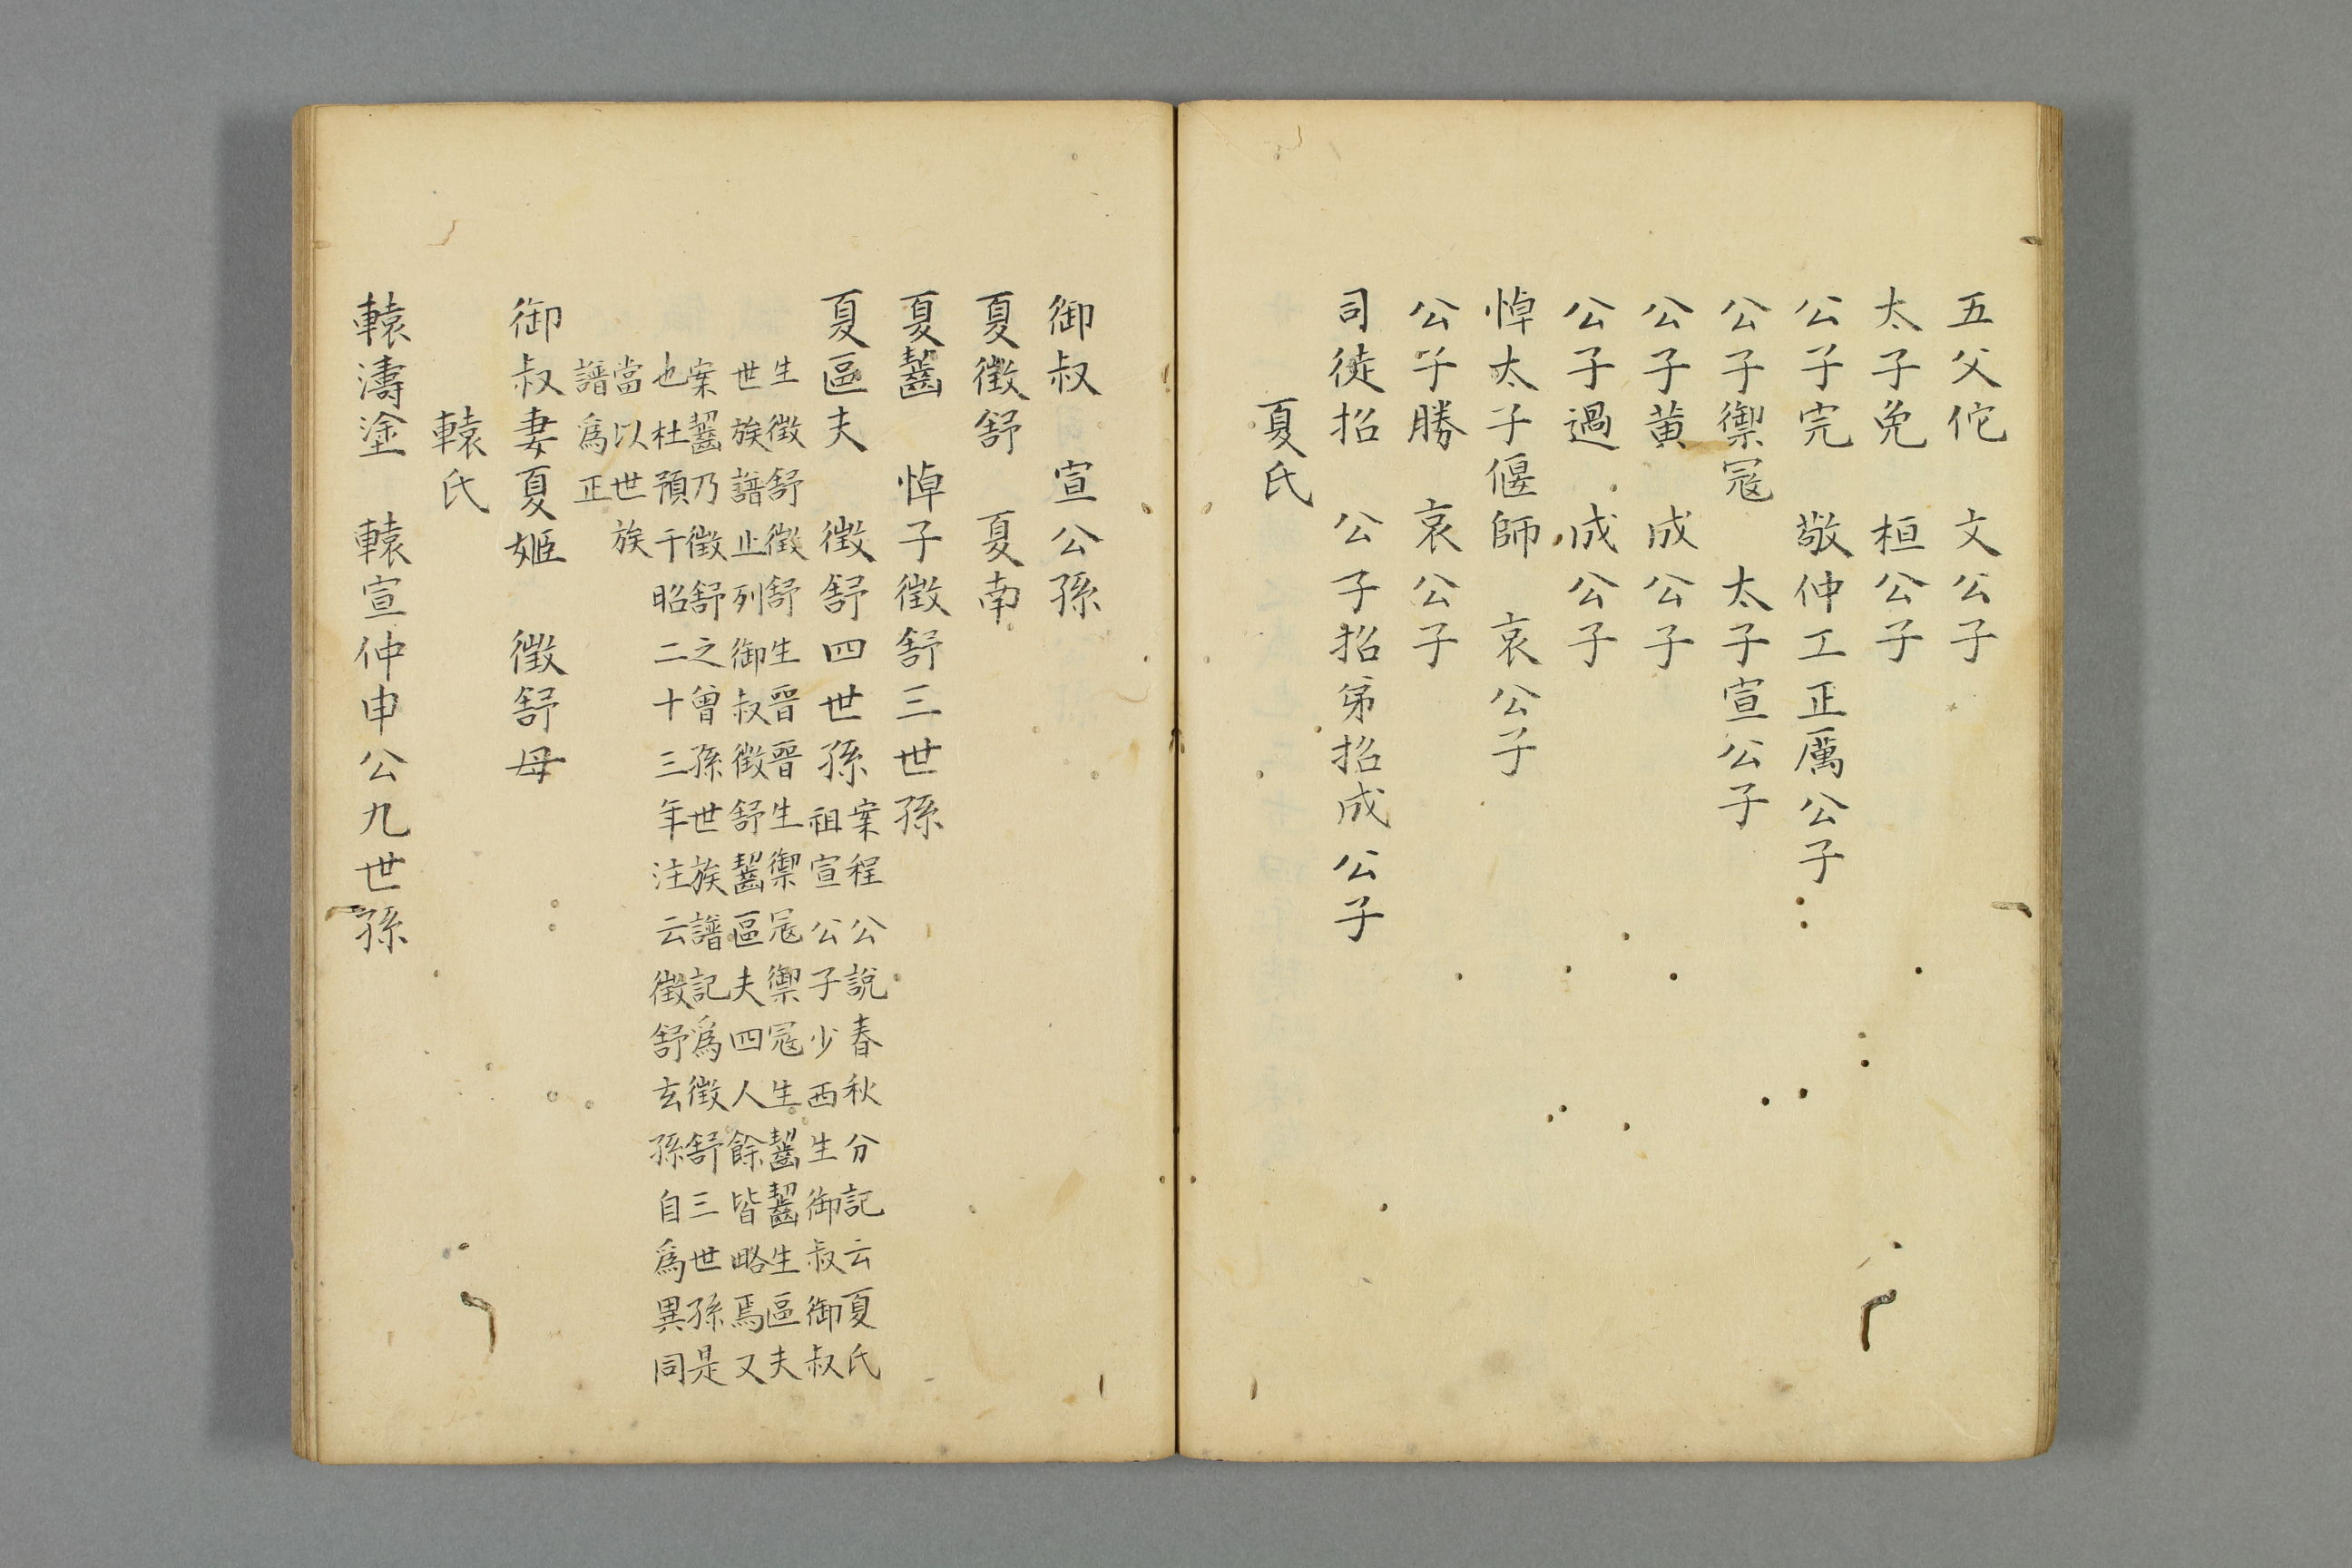 五父佗　文公子
太子免　桓公子
公子完　敬仲工正厲公子
公子禦冦　太子宣公子
公子黄　成公子
公子過　成公子
悼太子偃師　哀公子
公子勝　哀公子
司徒招　公子招弟招成公子
夏氏
御叔　宣公孫
夏徵舒　夏南
夏齧　悼子徵舒三世孫
夏區夫　徵舒四世孫
案程公說春秋分記云夏氏
祖宣公子少西生御叔御叔
生徵舒徵舒生晉晉生禦冦禦冦生齧齧生區夫
世族譜止列御叔徵舒齧區夫四人餘皆略焉又
案齧乃徵舒之曾孫世族譜記爲徵舒三世孫是
也杜預于昭二十三年注云徵舒玄孫自爲異同
當以世族
譜爲正
御叔妻夏姬　徵舒母
轅氏
轅濤塗　轅宣仲申公九世孫